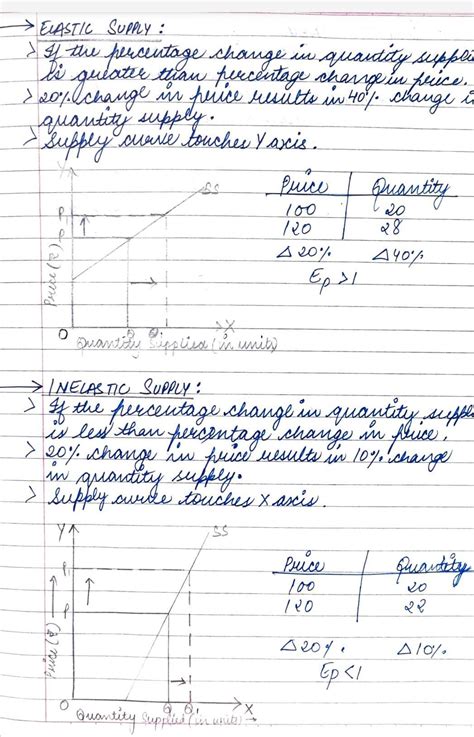 → ELASTIC SUPPLY :
> If the percentage change in quantity supplie
is greater than percentage change in price.
> 20% change in price results in 40% change i
quantity supply.
> Supply curve touches Y axis.
Y
SS
P₁
P
Price (₹)
O
Q Q₁
X
Quantity Supplied (in units)
Price Quantity
100 20
120 28
△ 20% △ 40%
Ep >1
→ INELASTIC SUPPLY :
> If the percentage change in quantity suppl
is less than percentage change in price.
> 20% change in price results in 10% change
in quantity supply.
> Supply curve touches X axis.
Y
SS
P₁
P
Price (₹) →
O
Q Q₁
X
Quantity Supplied (in units) →
Price Quantity
100 20
120 22
△ 20% △ 10%
Ep <1